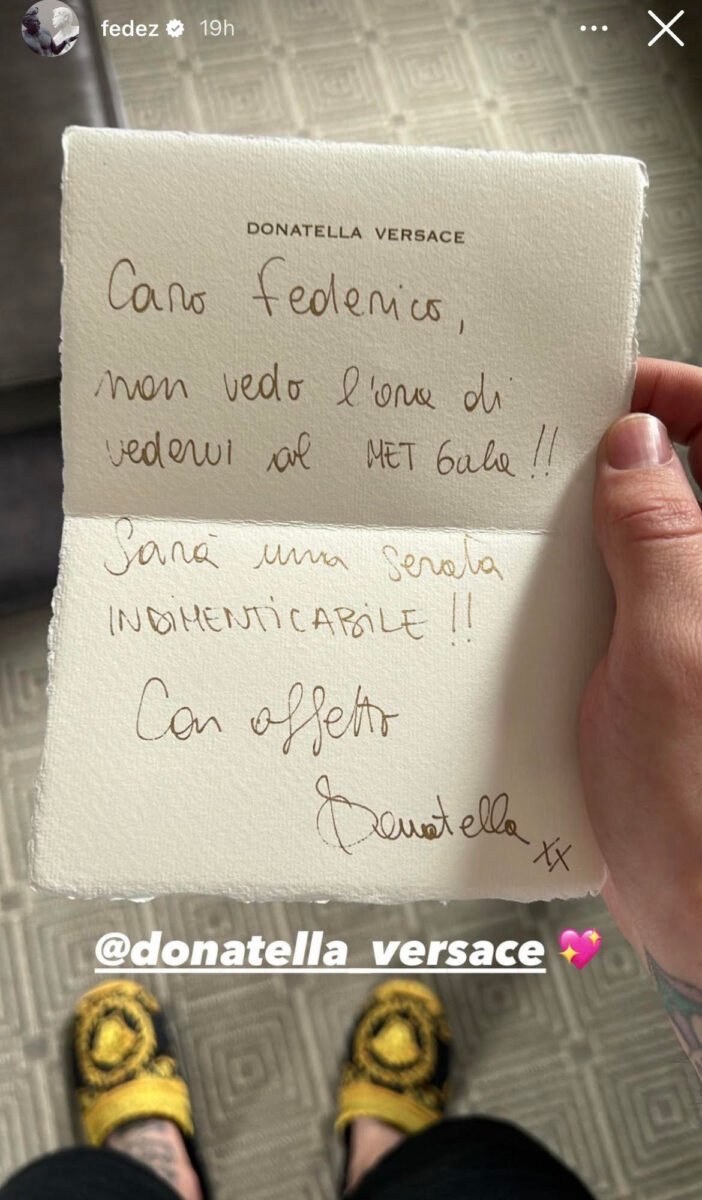 fedez 19h
DONATELLA VERSACE
Caro Federico,
non vedo l'ora di
vedervi al MET Gala!!
Sarà una serata
INDIMENTICABILE!!
Con affetto
Donatella xx
@donatella_versace